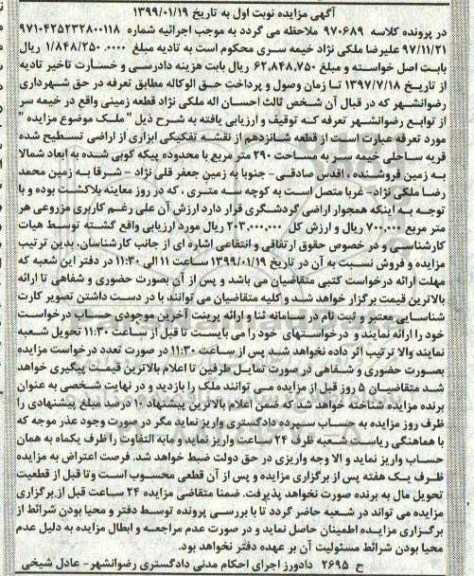 آگهی مزایده نوبت اول به تاریخ ۱۳۹۹/۰۱/۱۹
در پرونده کلاسه ۹۷۰۶۸۹ ملاحظه می گردد به موجب اجرائیه شماره ۹۷۱۰۴۲۵۲۳۲۸۰۰۱۱۸
۹۷/۱۱/۲۱ علیرضا ملکی نژاد خیمه سری محکوم است به تادیه مبلغ ۱/۸۴۸/۲۵۰.۰۰۰ ریال
بابت اصل خواسته و مبلغ ۶۲,۸۴۸,۷۵۰ ریال بابت هزینه دادرسی و خسارت تاخیر تادیه
از تاریخ ۱۳۹۷/۷/۱۸ تا زمان وصول و پرداخت حق الوکاله مطابق تعرفه در حق شهرداری
رضوانشهر که در قبال آن شخص ثالث احسان اله ملکی نژاد قطعه زمینی واقع در خیمه سر
از توابع رضوانشهر تعرفه که توقیف و ارزیابی یافته به شرح ذیل " ملک موضوع مزایده "
مورد تعرفه عبارت است از قطعه شانزدهم از نقشه تفکیکی ابزاری از اراضی تسطیح شده
قریه ساحلی خیمه سر به مساحت ۲۹۰ متر مربع با محدوده پیکه کوبی شده به ابعاد شمالا
به زمین فروشنده ، اقدس صادقی- جنوبا به زمین جعفر قلی نژاد - شرقا به زمین محمد
رضا ملکی نژاد- غربا متصل است به کوچه سه متری ، که در روز معاینه بلاکشت بوده و با
توجه به اینکه همجوار اراضی گردشگری قرار دارد ارزش آن علی رغم کاربری مزروعی هر
متر مربع ۷۰۰,۰۰۰ ریال و ارزش کل ۲۰۳,۰۰۰,۰۰۰ ریال مورد ارزیابی واقع گشته توسط هیات
کارشناسی و در خصوص حقوق ارتفاقی و انتفاعی اشاره ای از جانب کارشناسان، بدین ترتیب
مزایده و فروش نسبت به آن در تاریخ ۱۳۹۹/۰۱/۱۹ ساعت ۱۱ الی ۱۱:۳۰ در دفتر این شعبه که
مهلت ارائه درخواست کتبی متقاضیان می باشد و پس از آن بصورت حضوری و شفاهی تا ارائه
بالاترین قیمت برگزار خواهد شد و کلیه متقاضیان می توانند با در دست داشتن تصویر کارت
شناسایی معتبر و ثبت نام در سامانه ثنا و ارائه پرینت آخرین موجودی حساب درخواست
خود را ارائه نمایند و درخواستهای خود را می بایست تا قبل از ساعت ۱۱:۳۰ تحویل شعبه
نمایند والا ترتیب اثر داده نخواهد شد پس از ساعت ۱۱:۳۰ در صورت تعدد درخواست مزایده
بصورت حضوری و شفاهی در صورت تمایل طرفین تا اعلام بالاترین قیمت پیگیری خواهد
شد متقاضیان ۵ روز قبل از مزایده می توانند ملک را بازدید و در نهایت شخصی به عنوان
برنده مزایده شناخته خواهد شد که ضمن اعلام بالاترین پیشنهاد ۱۰ درصد مبلغ پیشنهادی را
ظرف روز مزایده به حساب سپرده دادگستری واریز نماید مگر در صورت وجود عذر موجه که
با هماهنگی ریاست شعبه ظرف ۲۴ ساعت واریز نماید و مابه التفاوت را ظرف یکماه به همان
حساب واریز نماید و الا وجه واریزی در حق دولت ضبط خواهد شد. فرصت اعتراض به مزایده
ظرف یک هفته پس از برگزاری مزایده و پس از آن قطعی محسوب است و تا قبل از قطعیت
تحویل مال به برنده صورت نخواهد پذیرفت. ضمنا متقاضی مزایده ۲۴ ساعت قبل از برگزاری
مزایده می تواند در شعبه حاضر گردد تا با بررسی پرونده توسط دفتر و محیا بودن شرائط از
برگزاری مزایده اطمینان حاصل نماید و در صورت عدم مراجعه و ابطال مزایده به دلیل عدم
محیا بودن شرائط مسئولیت آن بر عهده دفتر نخواهد بود.
ح ۲۶۹۵ دادورز اجرای احکام مدنی دادگستری رضوانشهر- عادل شیخی